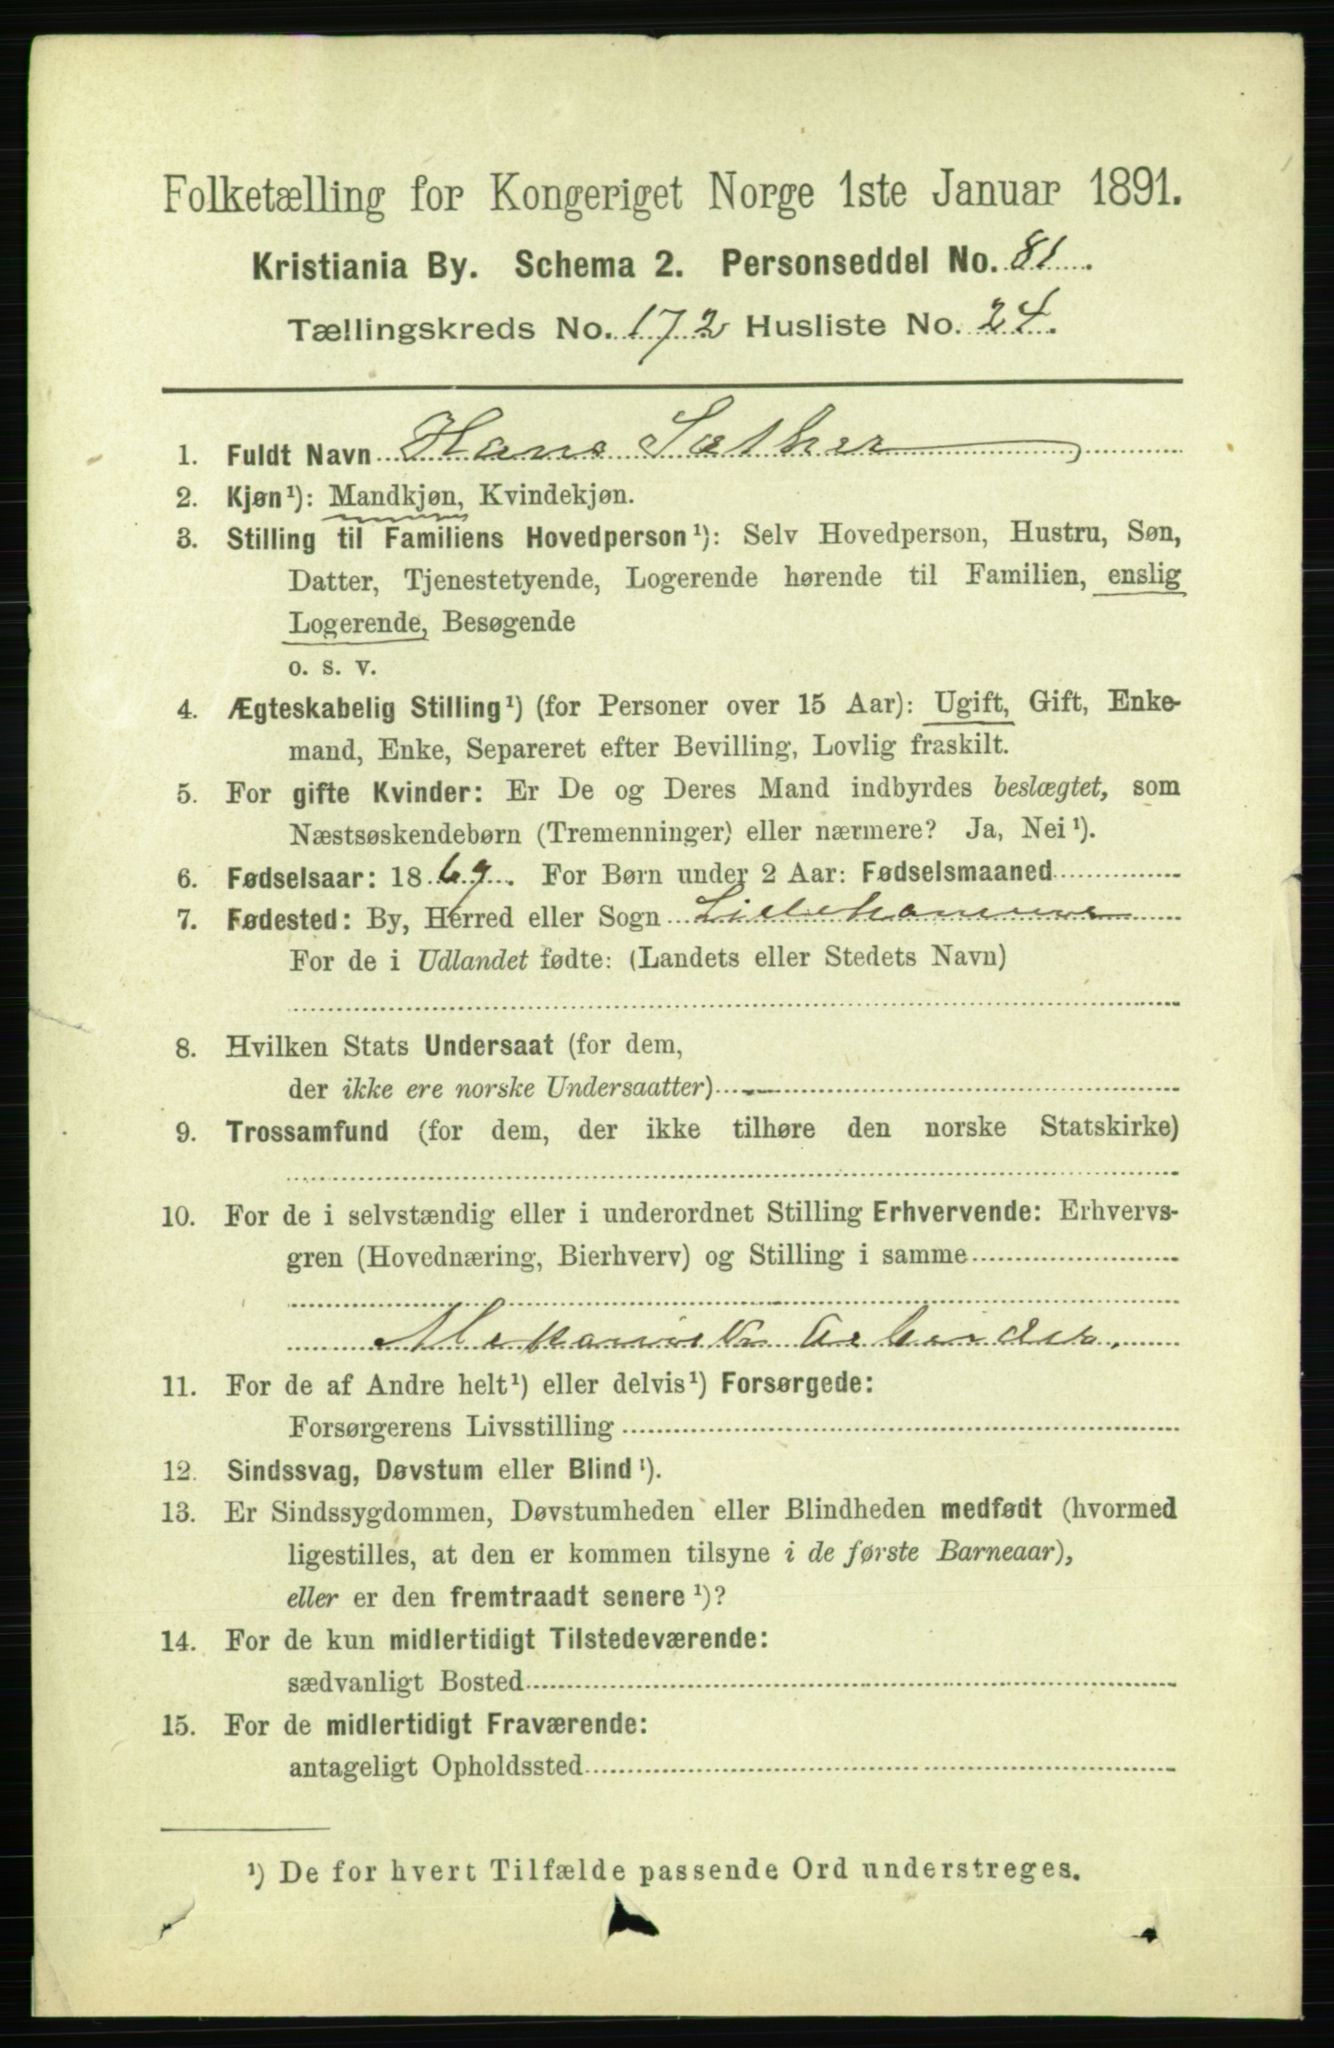 Folketælling for Kongeriget Norge 1ste Januar 1891.
Kristiania By. Schema 2. Personseddel No. 81.
Tællingskreds No. 172 Husliste No. 24.
1. Fuldt Navn Hans Sæther
2. Kjøn¹): Mandkjøn, Kvindekjøn.
3. Stilling til Familiens Hovedperson¹): Selv Hovedperson, Hustru, Søn,
Datter, Tjenestetyende, Logerende hørende til Familien, enslig
Logerende, Besøgende
o. s. v.
4. Ægteskabelig Stilling¹) (for Personer over 15 Aar): Ugift, Gift, Enke-
mand, Enke, Separeret efter Bevilling, Lovlig fraskilt.
5. For gifte Kvinder: Er De og Deres Mand indbyrdes beslægtet, som
Næstsøskendebørn (Tremenninger) eller nærmere? Ja, Nei¹).
6. Fødselsaar: 1869. For Børn under 2 Aar: Fødselsmaaned
7. Fødested: By, Herred eller Sogn Lillehammer
For de i Udlandet fødte: (Landets eller Stedets Navn)
8. Hvilken Stats Undersaat (for dem,
der ikke ere norske Undersaatter)
9. Trossamfund (for dem, der ikke tilhøre den norske Statskirke)
10. For de i selvstændig eller i underordnet Stilling Erhvervende: Erhvervs-
gren (Hovednæring, Bierhverv) og Stilling i samme
Mekanisk Arbeider.
11. For de af Andre helt¹) eller delvis¹) Forsørgede:
Forsørgerens Livsstilling
12. Sindssvag, Døvstum eller Blind¹).
13. Er Sindssygdommen, Døvstumheden eller Blindheden medfødt (hvormed
ligestilles, at den er kommen tilsyne i de første Barneaar),
eller er den fremtraadt senere¹)?
14. For de kun midlertidigt Tilstedeværende:
sædvanligt Bosted
15. For de midlertidigt Fraværende:
antageligt Opholdssted
¹) De for hvert Tilfælde passende Ord understreges.